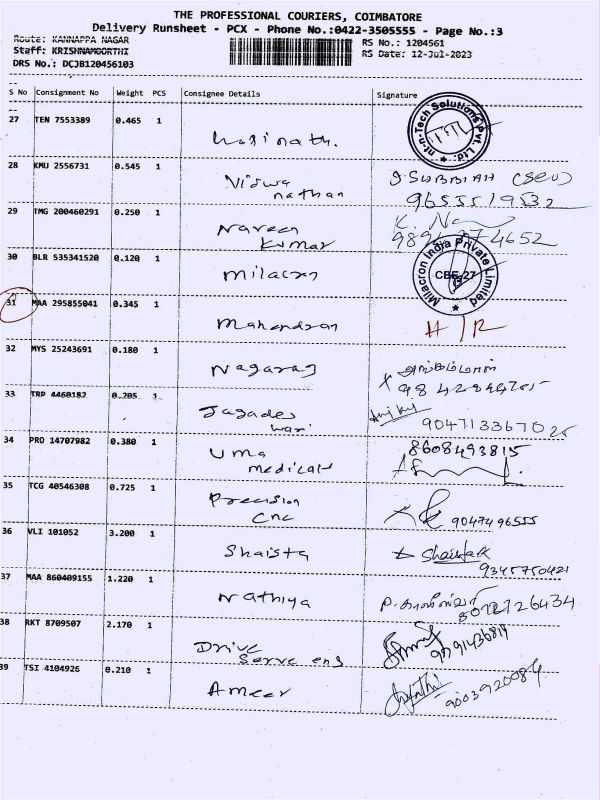 THE PROFESSIONAL COURIERS, COIMBATORE
Delivery Runsheet - PCX - Phone No.:0422-3505555 - Page No.:3
Route: KANNAPPA NAGAR
RS No.: 1204561
Staff: KRISHNAMOORTHI
RS Date: 12-Jul-2023
DRS No.: DCJB120456103
S No Consignment No Weight PCS Consignee Details Signature
27 TEN 7553389 0.465 1
Harinath.
nt-n-Tech Solutions Pvt. Ltd.
28 KMU 2556731 0.545 1
Viswa
nathan
J. SUBBIAH
9655519532
29 TMG 200460291 0.250 1
Naveen
Kumar
30 BLR 535341520 0.120 1
Milacron
Milacron India Private Limited
CBE-27
31 MAA 295855041 0.345 1
Mahendran
H/R
32 MYS 25243691 0.180 1
Nagaraj
33 TRP 4460182 0.205 1
Jagades
wari
34 PRO 14707982 0.380 1
Uma
medicals
8608493815
35 TCG 40546308 0.725 1
Precision
Cnc
9047496555
36 VLI 101052 3.200 1
Shaista
9345750421
37 MAA 860409155 1.220 1
Nathiya
38 RKT 8709507 2.170 1
Drive
Serve eng
9791436819
39 TSI 4104926 0.210 1
Ameer
9003920084